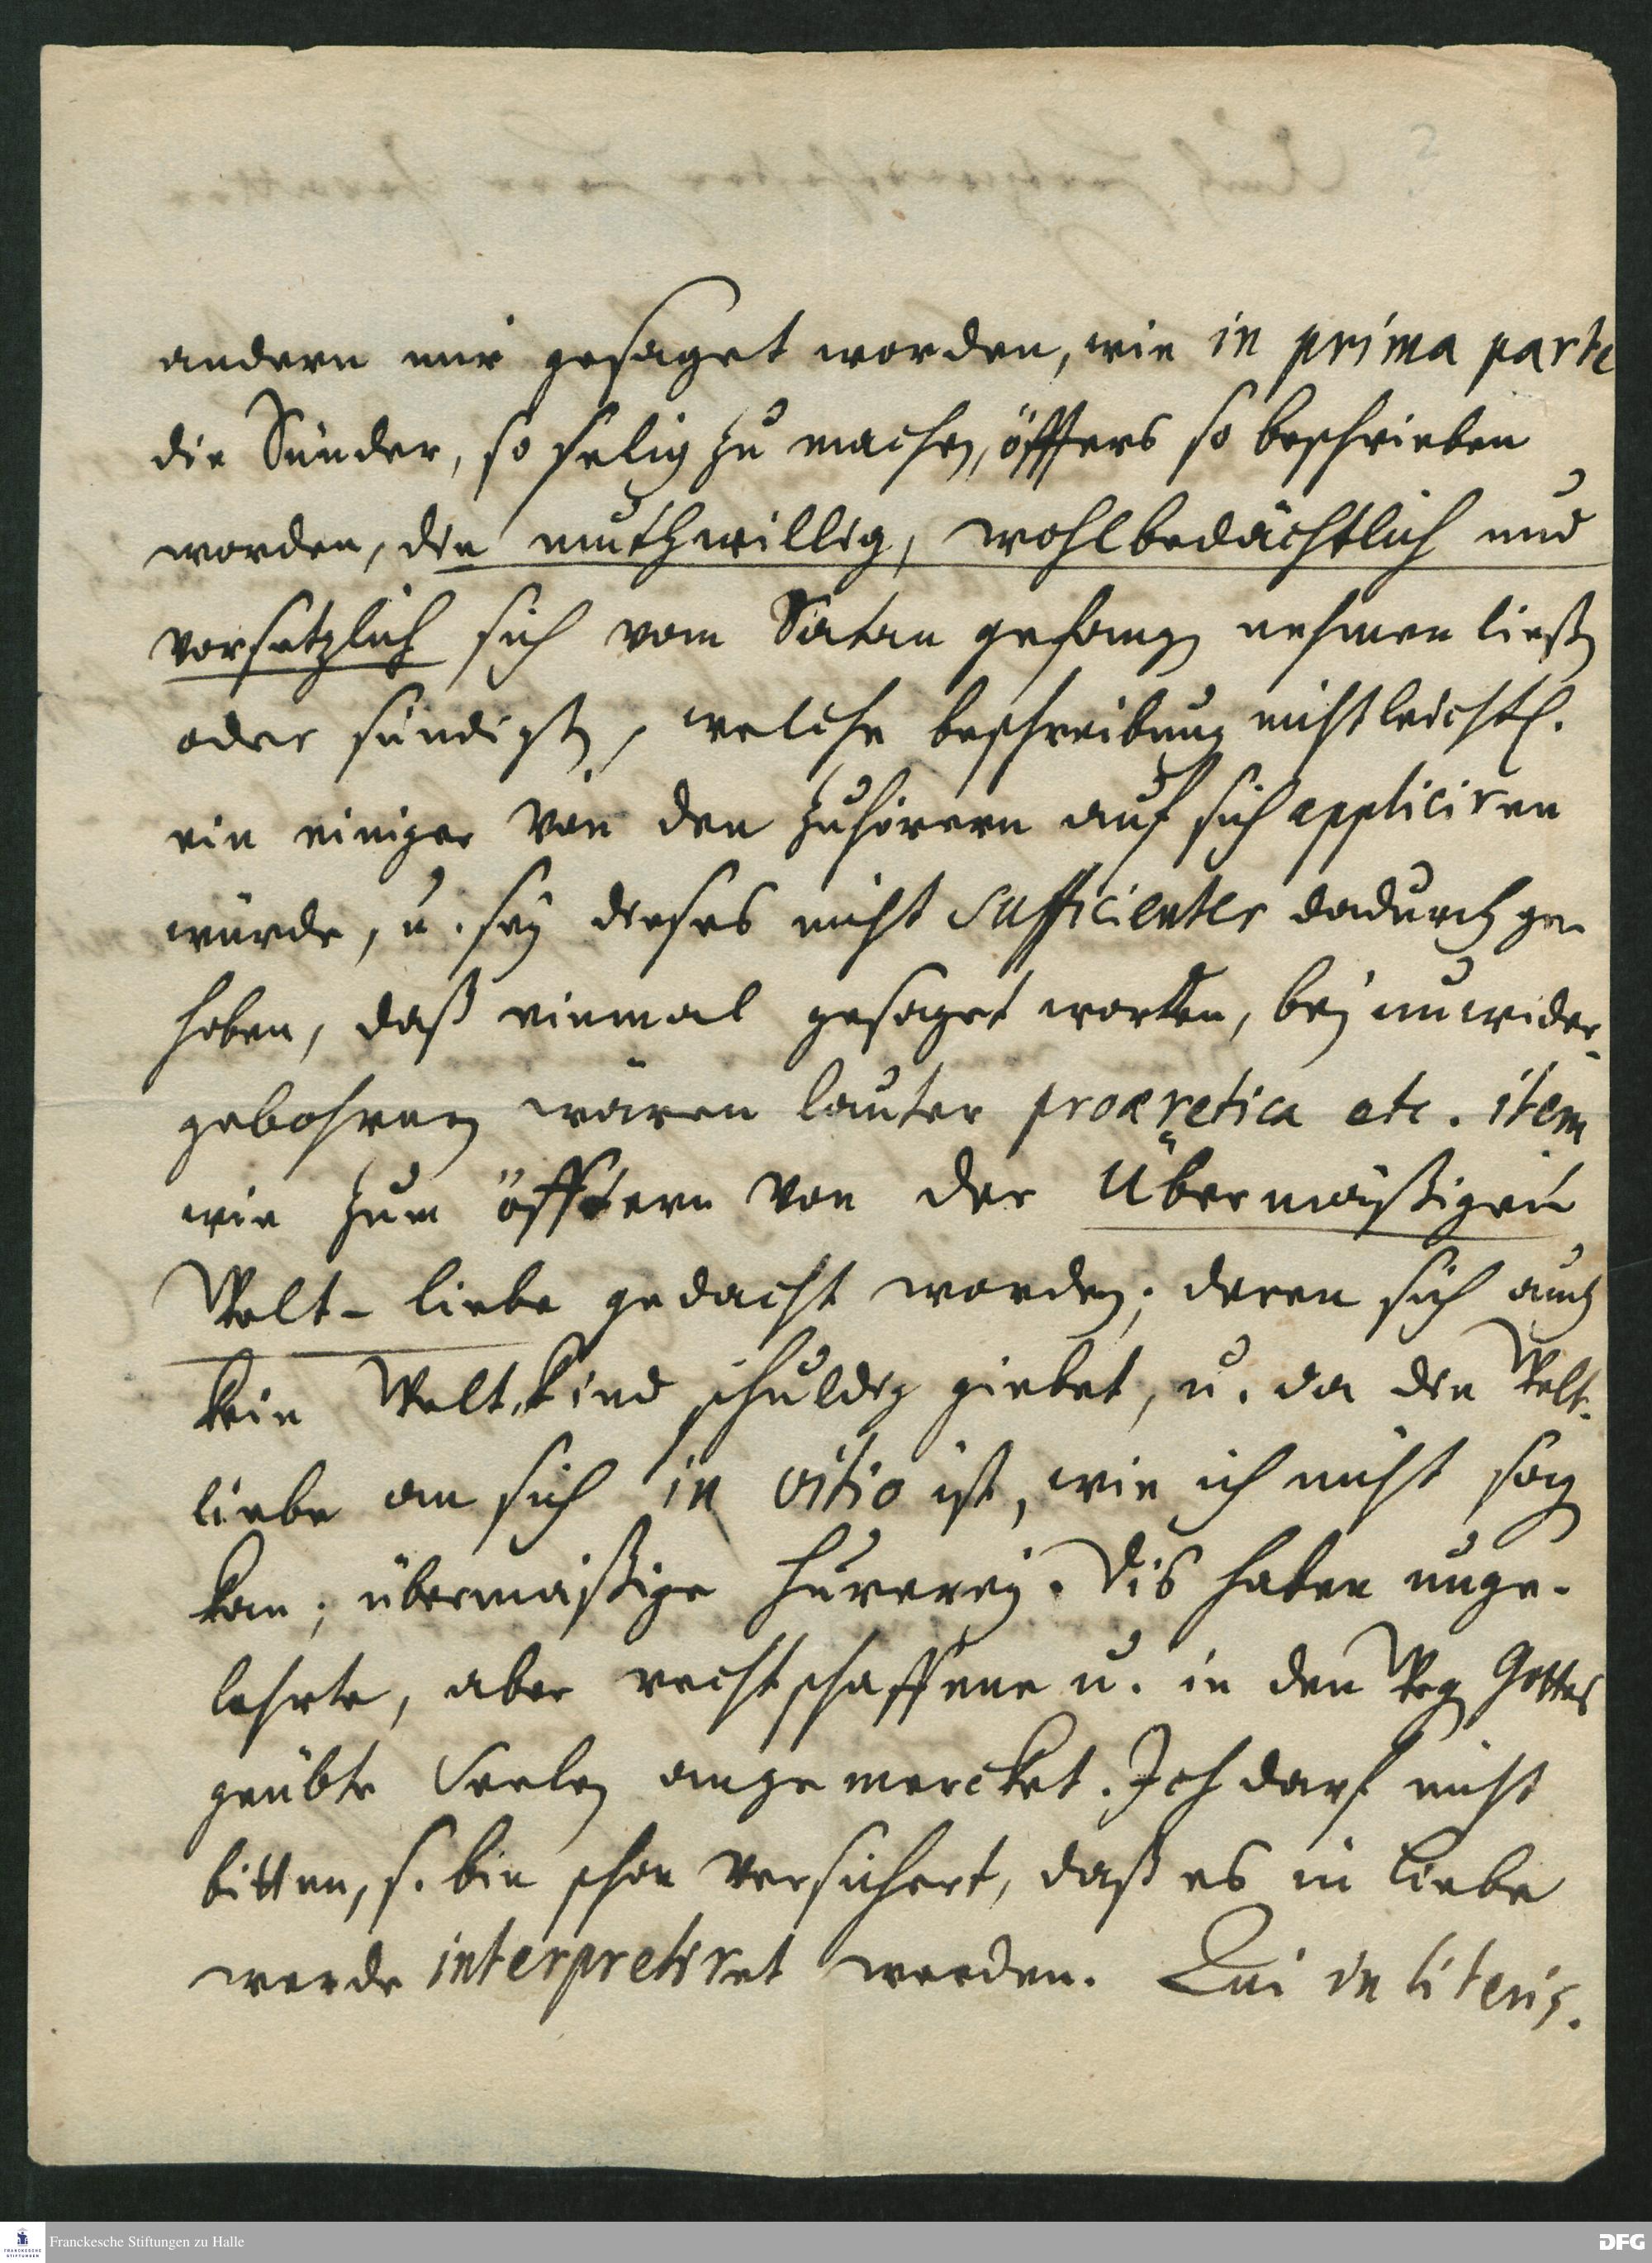 andern mir gesaget worden, wie in prima parte
die Sünder, so selig zu machen, öffters so beschrieben
worden, die muthwillig, wohlbedächtlich und
vorsetzlich sich vom Satan gefangen nehmen ließen
oder sündigten, welche beschreibung nicht leichtl.
ein einiger von den Zuhörern auf sich appliciren
würde, u. sey dieses nicht sufficienter dadurch ge-
hoben, daß einmal gesaget worden, bey unwider-
gebohrnen wären lauter proæretica etc. item
wie zum öfftern von der übermäßigen
Welt-liebe gedacht worden; deren sich auch
kein Welt-kind schuldig giebet, u. da die Welt-
liebe an sich in vitio ist, wie ich nicht sagen
kan; übermäßige Hurerey. Dis haben unge-
lehrte, aber rechtschaffene u. in den Wegen Gottes
geübte Seelen angemercket. Ich darf nicht
bitten, s. bin schon versichert, daß es in Liebe
werde interpretiret werden. Qui in literis.
Franckesche Stiftungen zu Halle
DFG